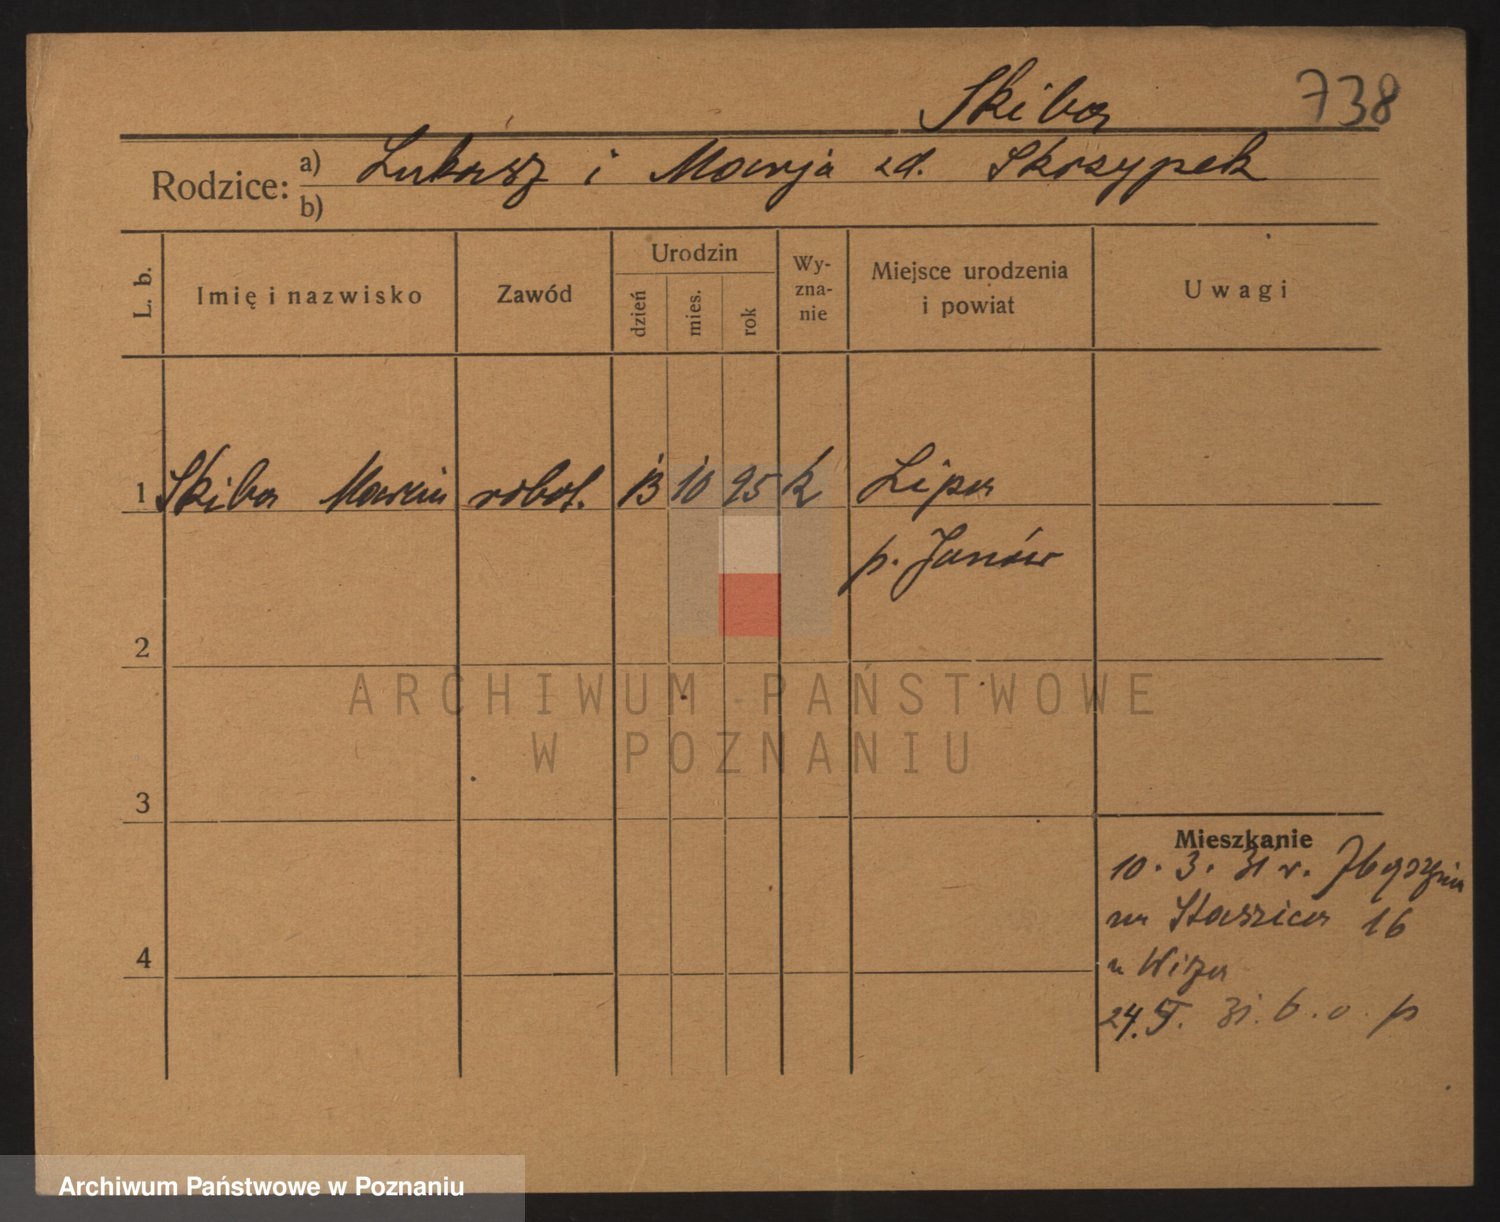 Skiba 738
Rodzice: a) Łukasz i Marja zd. Skrzypek
b)
L. b. Imię i nazwisko Zawód Urodzin dzień mies. rok Wy-zna-nie Miejsce urodzenia i powiat Uwagi
1 Skiba Marcin robot. 13 10 95 k Lipa
p. Janów
2
ARCHIWUM PAŃSTWOWE
W POZNANIU
3
Mieszkanie
10. 3. 31 r. Zbąszynia
na Staszica 16
u Wiza
4
24. 5. 31. b. o. p
Archiwum Państwowe w Poznaniu